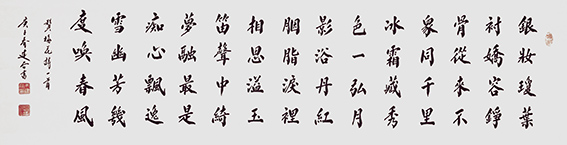 銀妝瓊葉
衬嬌容錚
骨從來不
象同千里
冰霜藏秀
色一弘月
影浴丹紅
胭脂淚裡
相思溢玉
笛聲中綺
夢融最是
痴心飄逸
雪幽芳幾
度喚春風
梅花詩一首